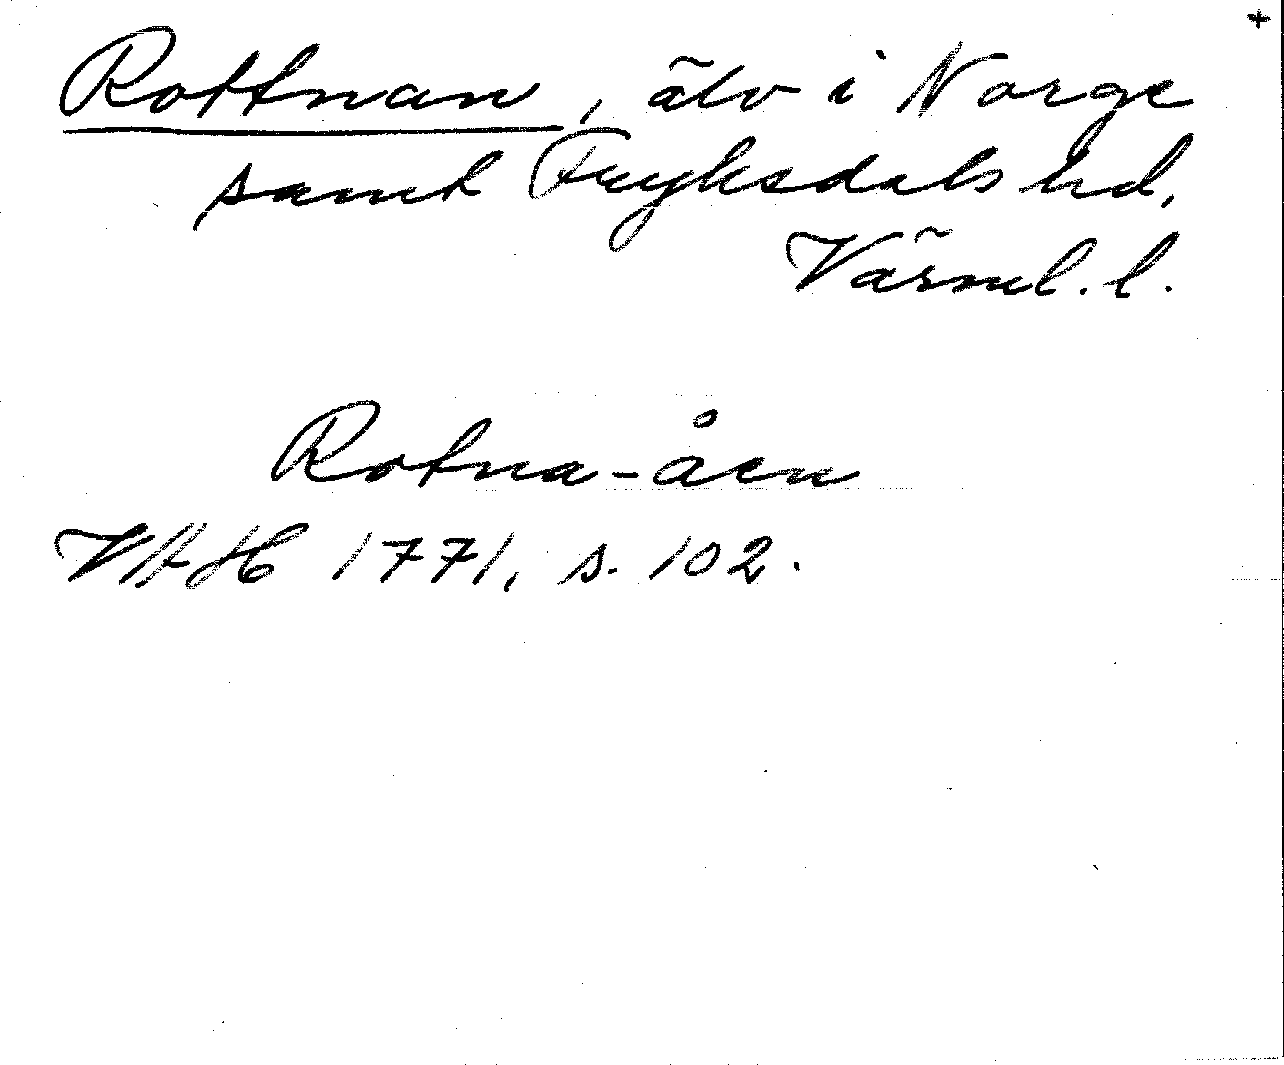 +
Rottnan, älv i Norge
samt Fryksdals hd,
Värml. l.
Rotna-åen
VAH 1771, s. 102.